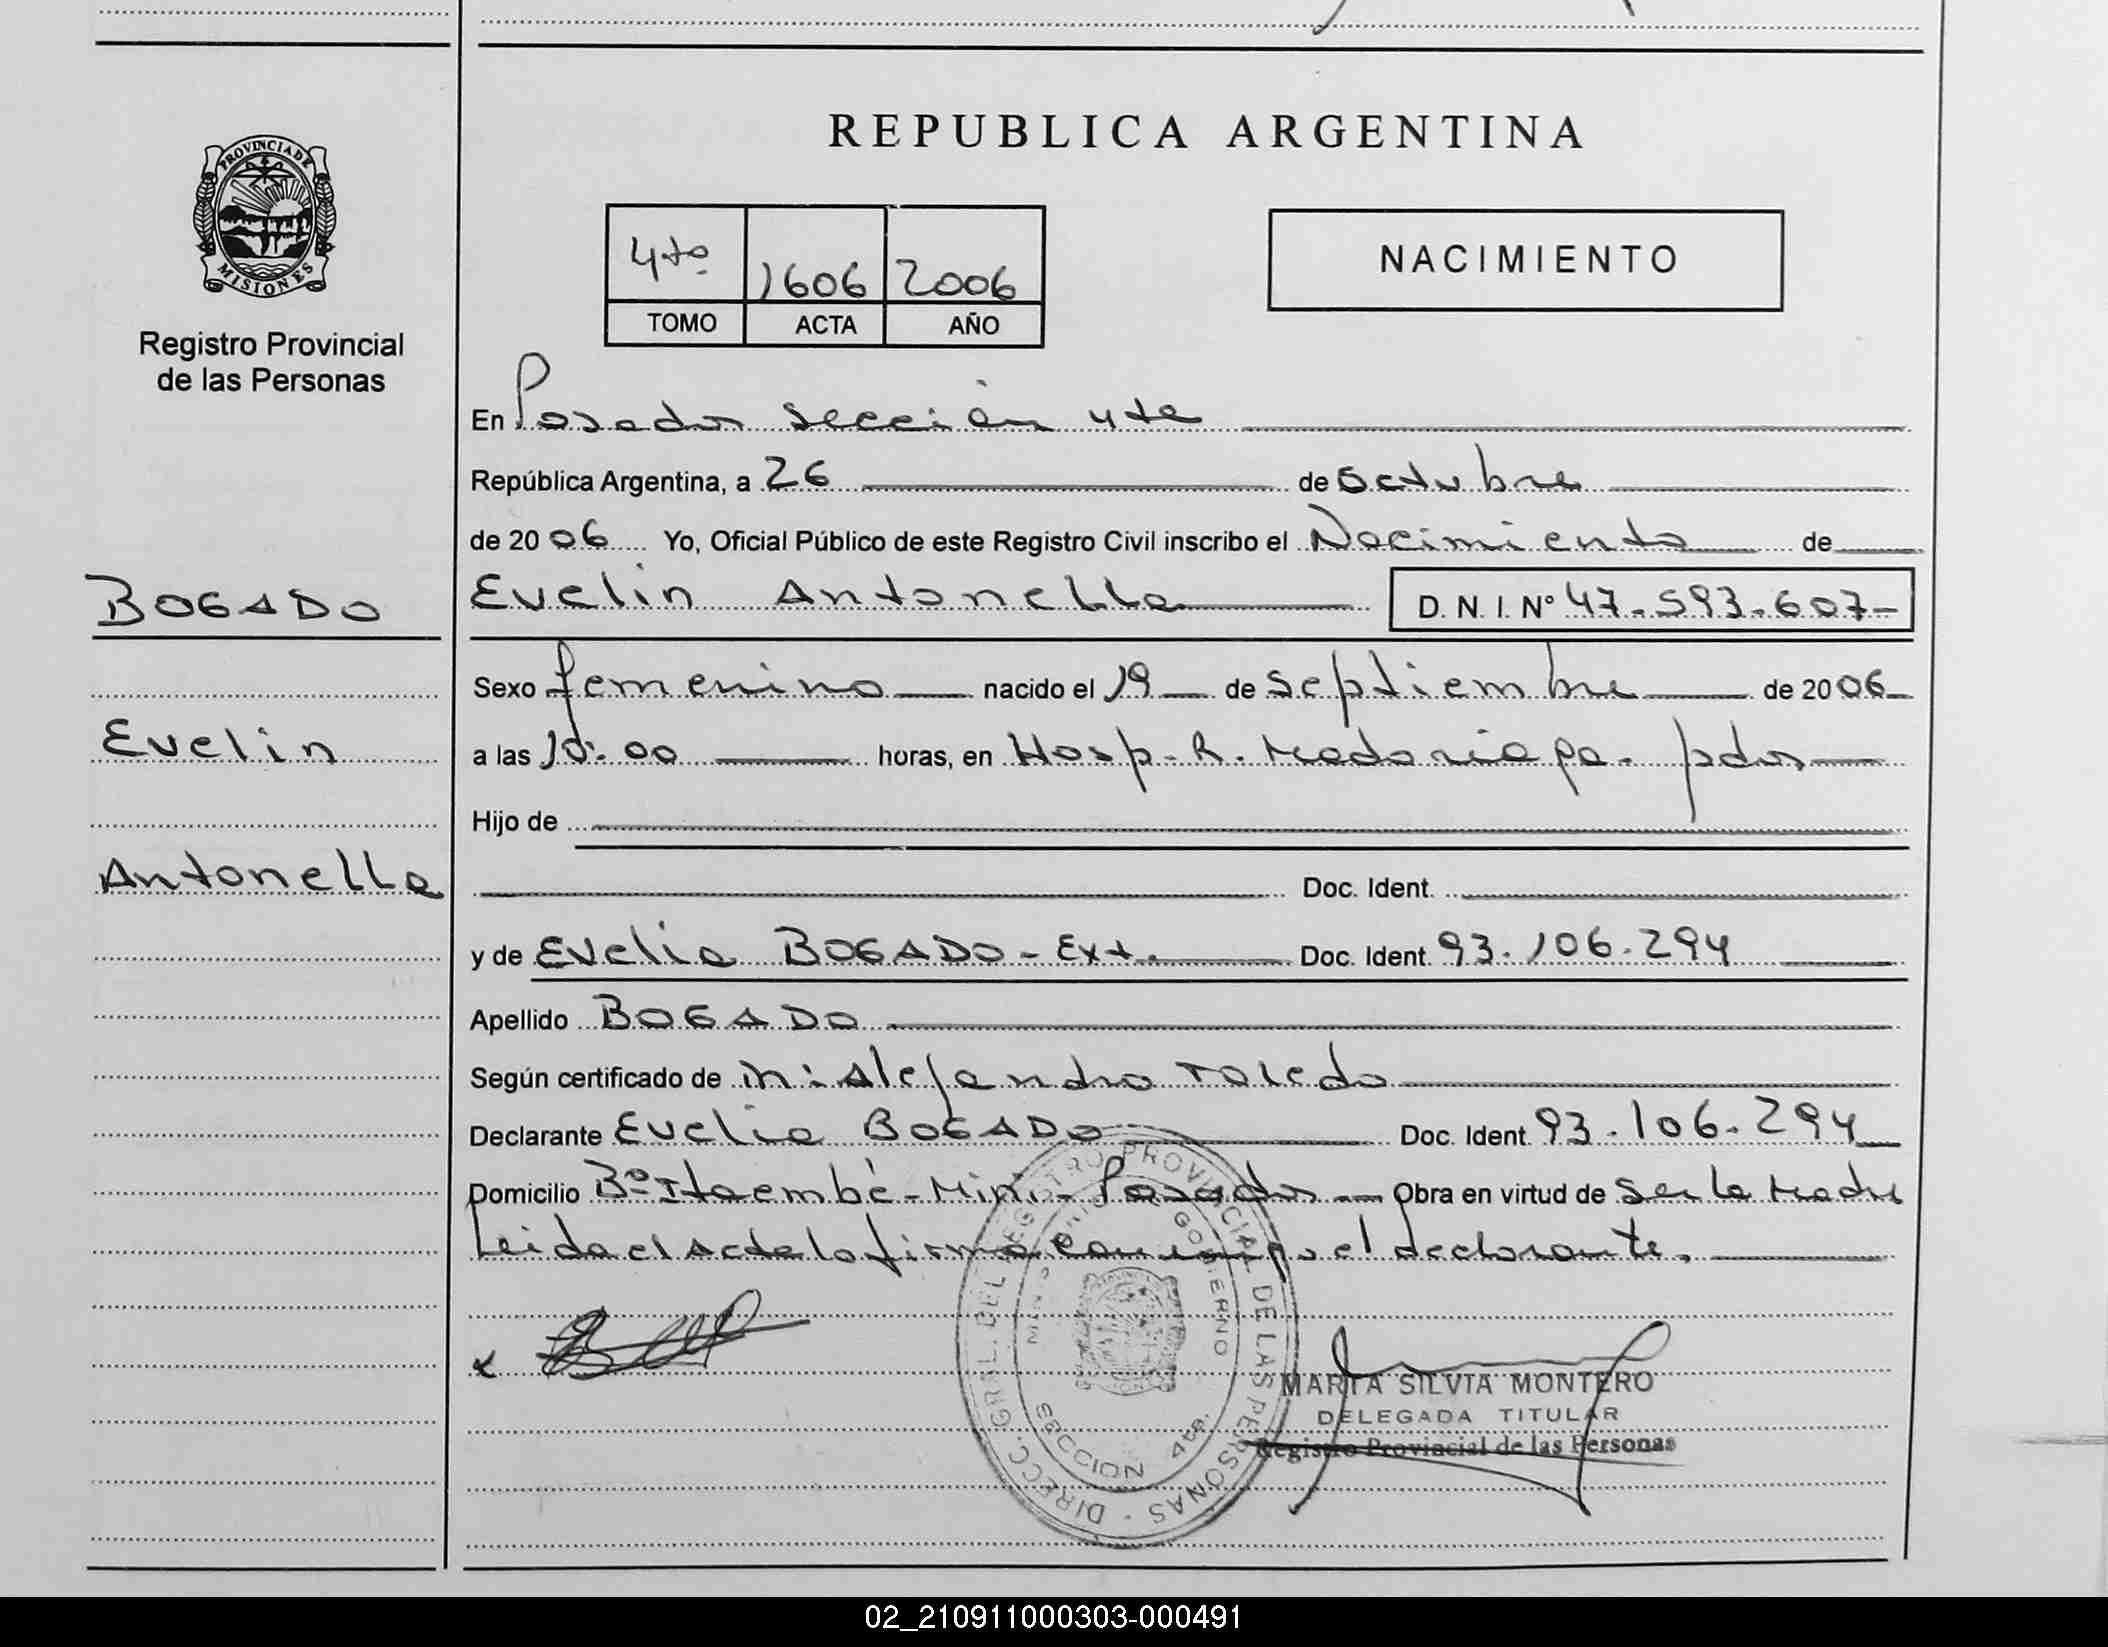 REPUBLICA ARGENTINA
PROVINCIA DE
MISIONES
Registro Provincial
de las Personas
4to 1606 2006
TOMO ACTA AÑO
NACIMIENTO
En Posadas sección 4ta
República Argentina, a 26 de octubre
de 2006 Yo, Oficial Público de este Registro Civil inscribo el Nacimiento de
BOGADO
Evelin Antonella D. N. I. Nº 47.593.607-
Sexo femenino nacido el 19 de septiembre de 2006
Evelin
a las 10:00 horas, en Hosp. R. Madariaga. pdas
Hijo de
Antonella
Doc. Ident.
y de Evelia BOGADO - Ext. Doc. Ident. 93.106.294
Apellido BOGADO
Según certificado de Alejandro Toledo
Declarante Evelia BOGADO Doc. Ident. 93.106.294
Domicilio Bº Itaembé - Miní - Posadas Obra en virtud de ser la madre
Leida el Acta la firma conmigo el declarante.
x
DIRECC. GRAL. DEL REGISTRO PROVINCIAL DE LAS PERSONAS
MINISTERIO DE GOBIERNO
SECCION 4ta.
MARTA SILVIA MONTERO
DELEGADA TITULAR
Registro Provincial de las Personas
02_210911000303-000491